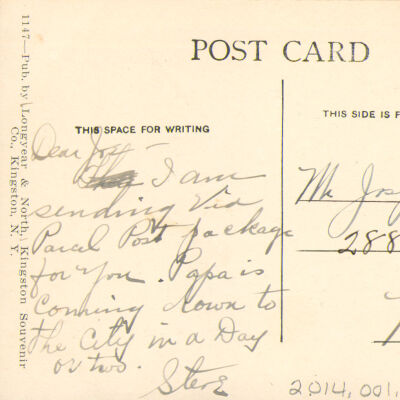 POST CARD
THIS SPACE FOR WRITING
THIS SIDE IS F
1147—Pub. by Longyear & North, Kingston Souvenir
Co., Kingston, N. Y.
Dear Jos —
I am
sending Via
Parcel Post package
for You. Papa is
coming down to
the City in a Day
or two.
Steve
Mr Jos
288
2014,001,